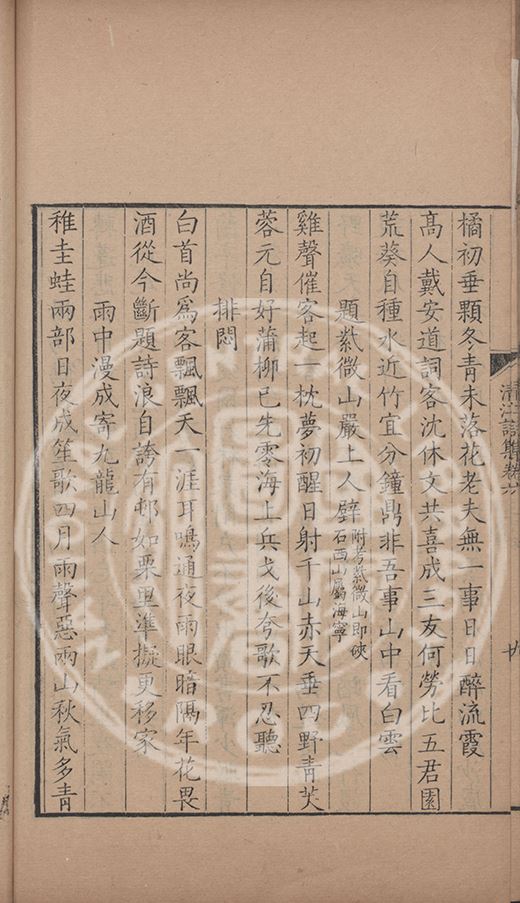 清江詩集卷六
橘初垂顆冬青未落花老夫無一事日日醉流霞
高人戴安道詞客沈休文共喜成三友何勞比五君園
荒葵自種水近竹宜分鐘鼎非吾事山中看白雲
題紫微山嚴上人壁附考紫微山即硤
石西山屬海寧
雞聲催客起一枕夢初醒日射千山赤天垂四野青芙
蓉元自好蒲柳已先零海上兵戈後夸歌不忍聽
排悶
白首尚爲客飄飄天一涯耳鳴通夜雨眼暗隔年花畏
酒從今斷題詩浪自誇有邨如栗里準擬更移家
雨中漫成寄九龍山人
稚圭蛙兩部日夜成笙歌四月雨聲惡兩山秋氣多青